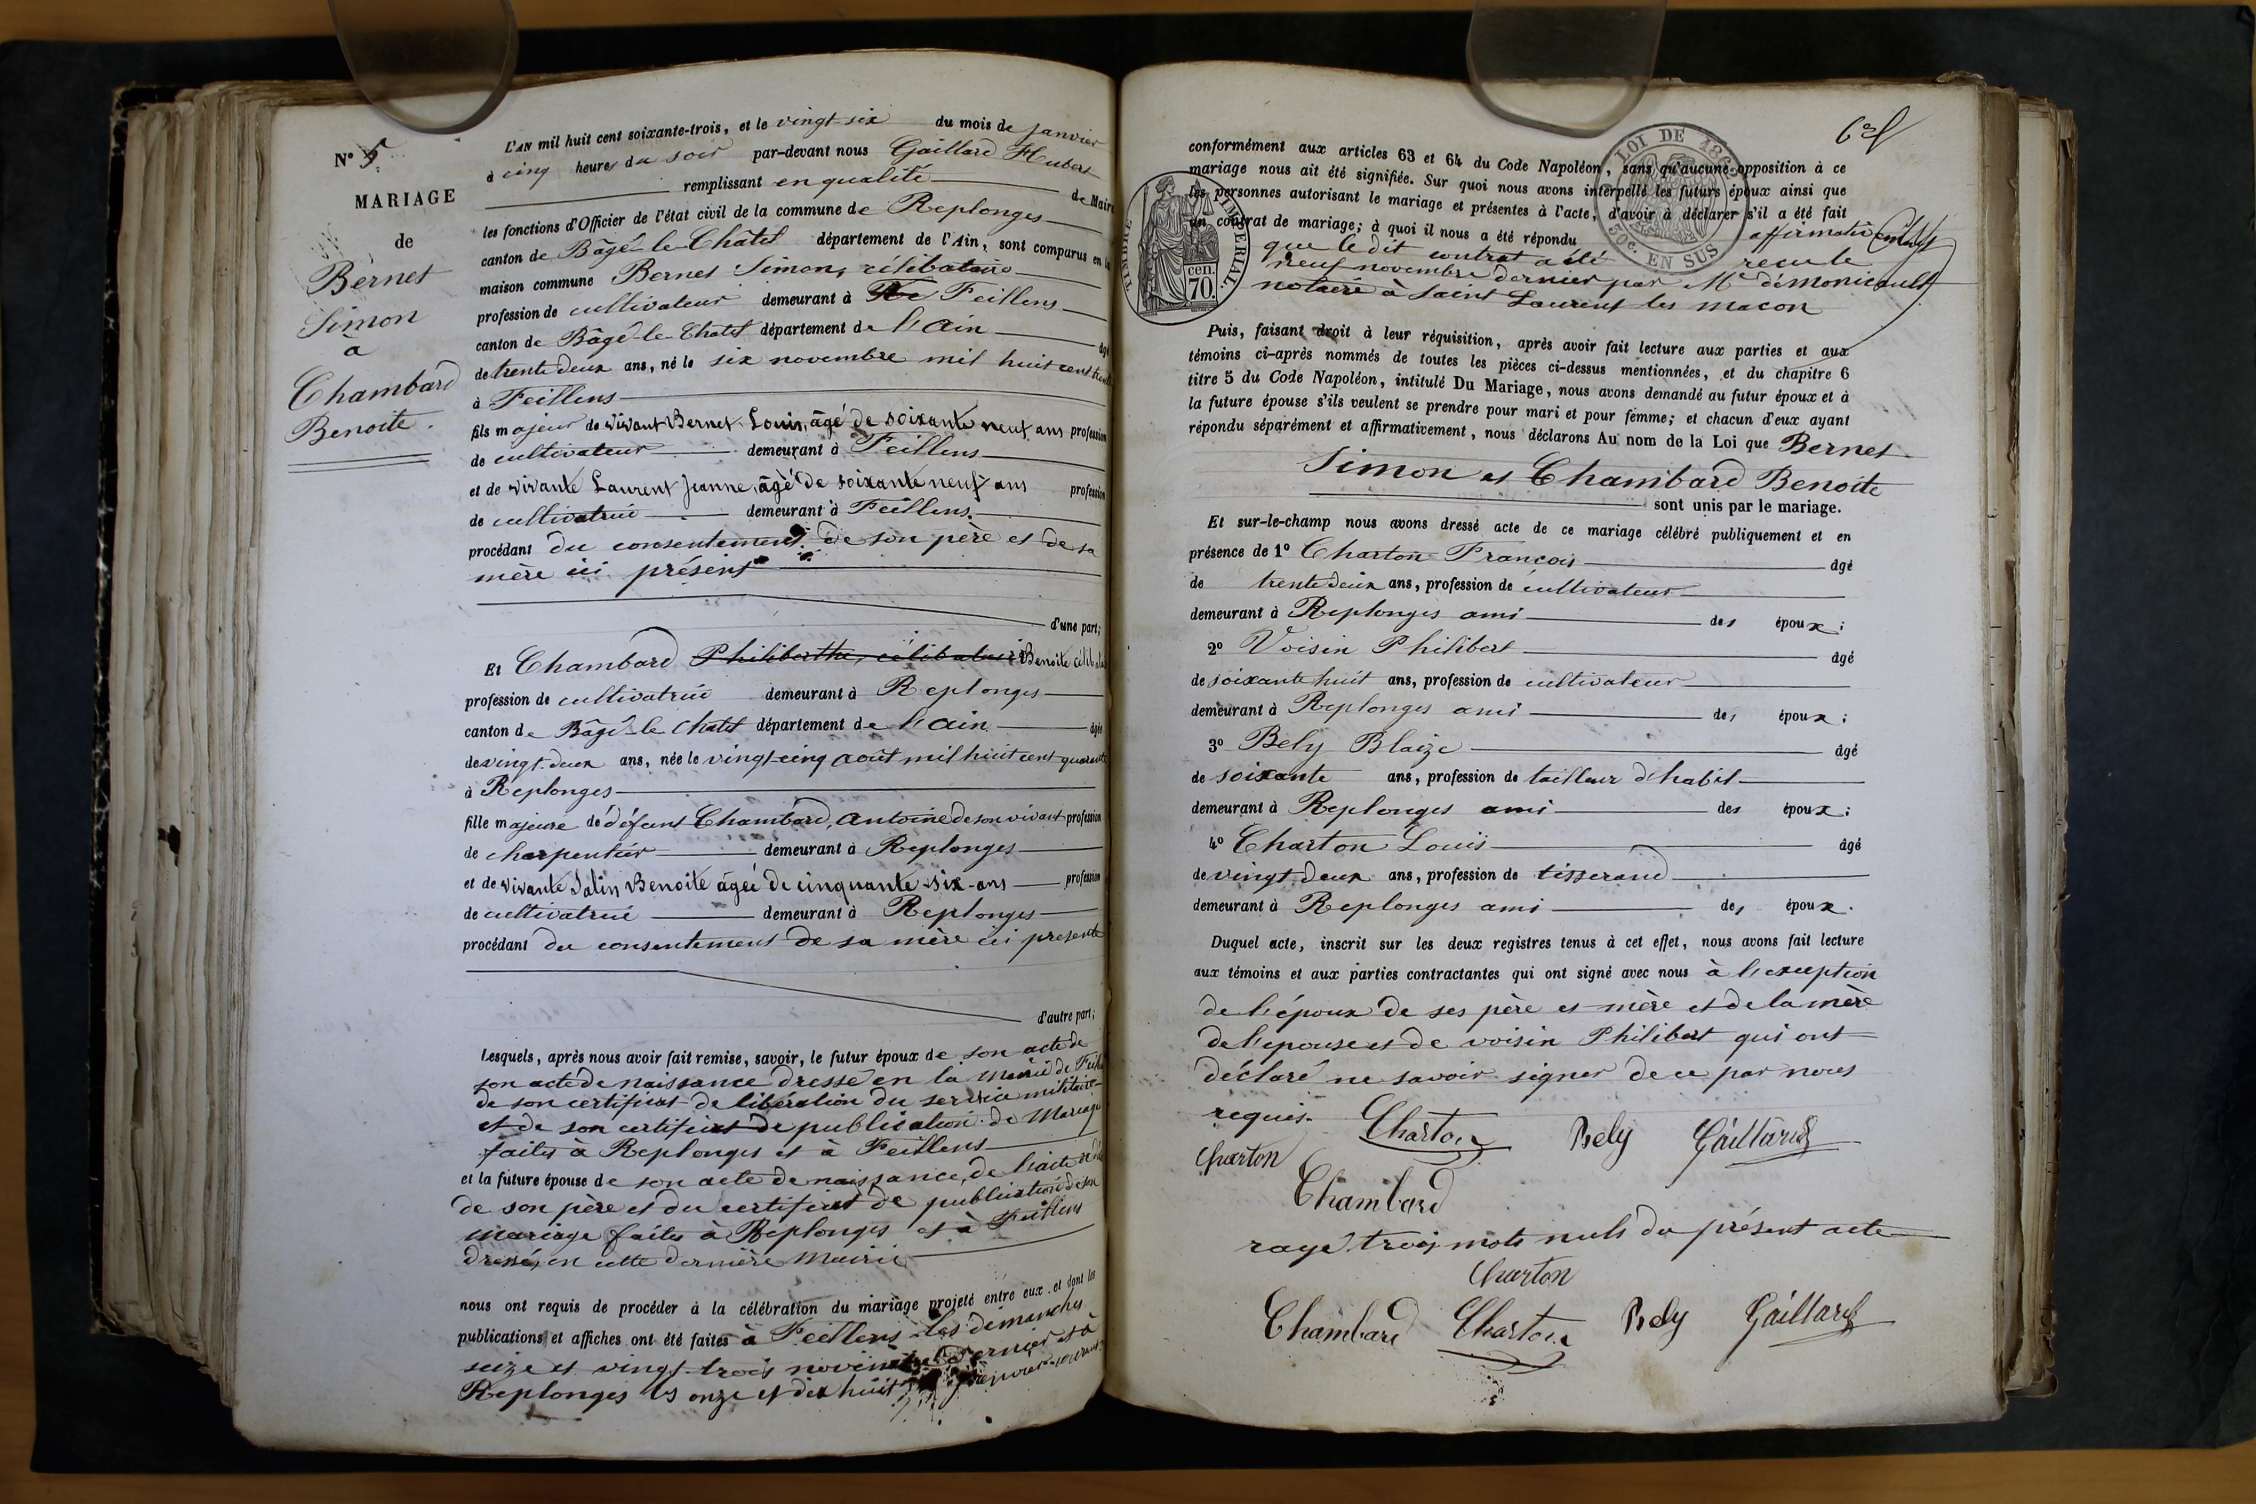 N° 5
MARIAGE
de
Bernet
Simon
à
Chambard
Benoite.
L'AN mil huit cent soixante-trois, et le vingt six du mois de janvier
à cinq heures du soir par-devant nous Gaillard Hubert
remplissant en qualité de Maire
les fonctions d'Officier de l'état civil de la commune de Replonges
canton de Bâgé-le-Châtel département de l'Ain, sont comparus en la
maison commune Bernet Simon, célibataire
profession de cultivateur demeurant à Feillens
canton de Bâgé-le-Chatel département de l'Ain âgé
de trente deux ans, né le six novembre mil huit cent trente
à Feillens
fils majeur de vivant Bernet Louis, âgé de soixante neuf ans profession
de cultivateur demeurant à Feillens
et de vivante Laurent Jeanne, âgé de soixante neuf ans profession
de cultivatrice demeurant à Feillens
procédant du consentement de son père et de sa
mère ici présent
d'une part;
Et Chambard Philiberthe, célibataire Benoite céliba
profession de cultivatrice demeurant à Replonges
canton de Bâgé-le Chatel département de l'Ain âgée
de vingt deux ans, née le vingt-cinq août mil huit cent quarante
à Replonges
fille majeure de défunt Chambard, Antoine de son vivant profession
de charpentier demeurant à Replonges
et de vivante Salin Benoite âgée de cinquante-six-ans profession
de cultivatrice demeurant à Replonges
procédant du consentement de sa mère ici présente
d'autre part;
Lesquels, après nous avoir fait remise, savoir, le futur époux de son acte de
son acte de naissance dressé en la Mairie de
de son certificat de libération du service militaire
et de son certificat de publication de Mariage
faites à Replonges et à Feillens
et la future épouse de son acte de naissance, de l'acte
de son père et du certificat de publication de son
mariage faites à Replonges et à Feillens
dressé, en cette dernière Mairie
nous ont requis de procéder à la célébration du mariage projeté entre eux et dont les
publications et affiches ont été faites à Feillens les dimanches
seize et vingt-trois novembre dernier et à
Replonges les onze et dix huit janvier courant
6
LOI DE 1862
30c. EN SUS
TIMBRE IMPERIAL
70 cen.
conformément aux articles 63 et 64 du Code Napoléon, sans qu'aucune opposition à ce
mariage nous ait été signifiée. Sur quoi nous avons interpellé les futurs époux ainsi que
les personnes autorisant le mariage et présentes à l'acte, d'avoir à déclarer s'il a été fait
un contrat de mariage; à quoi il nous a été répondu affirmativement
que le dit contrat a été recu le
neuf novembre dernier par Me démonicault
notaire à Saint Laurent les macon
Puis, faisant droit à leur réquisition, après avoir fait lecture aux parties et aux
témoins ci-après nommés de toutes les pièces ci-dessus mentionnées, et du chapitre 6
titre 5 du Code Napoléon, intitulé Du Mariage, nous avons demandé au futur époux et à
la future épouse s'ils veulent se prendre pour mari et pour femme; et chacun d'eux ayant
répondu séparément et affirmativement, nous déclarons Au nom de la Loi que Bernet
Simon et Chambard Benoite
sont unis par le mariage.
Et sur-le-champ nous avons dressé acte de ce mariage célébré publiquement et en
présence de 1° Charton François âgé
de trente deux ans, profession de cultivateur
demeurant à Replonges ami des époux;
2° Voisin Philibert âgé
de soixante huit ans, profession de cultivateur
demeurant à Replonges ami des époux;
3° Bely Blaize âgé
de soixante ans, profession de tailleur d'habit
demeurant à Replonges ami des époux;
4° Charton Louis âgé
de vingt deux ans, profession de tisserand
demeurant à Replonges ami des époux.
Duquel acte, inscrit sur les deux registres tenus à cet effet, nous avons fait lecture
aux témoins et aux parties contractantes qui ont signé avec nous à l'exception
de l'époux de ses père et mère et de la mère
de l'epouse et de voisin Philibert qui ont
déclaré ne savoir signer de ce par nous
requis.
Charton Bely Gaillard
Charton
Chambard
rayé trois mots nuls du présent acte
Charton
Chambard Charton Bely Gaillard